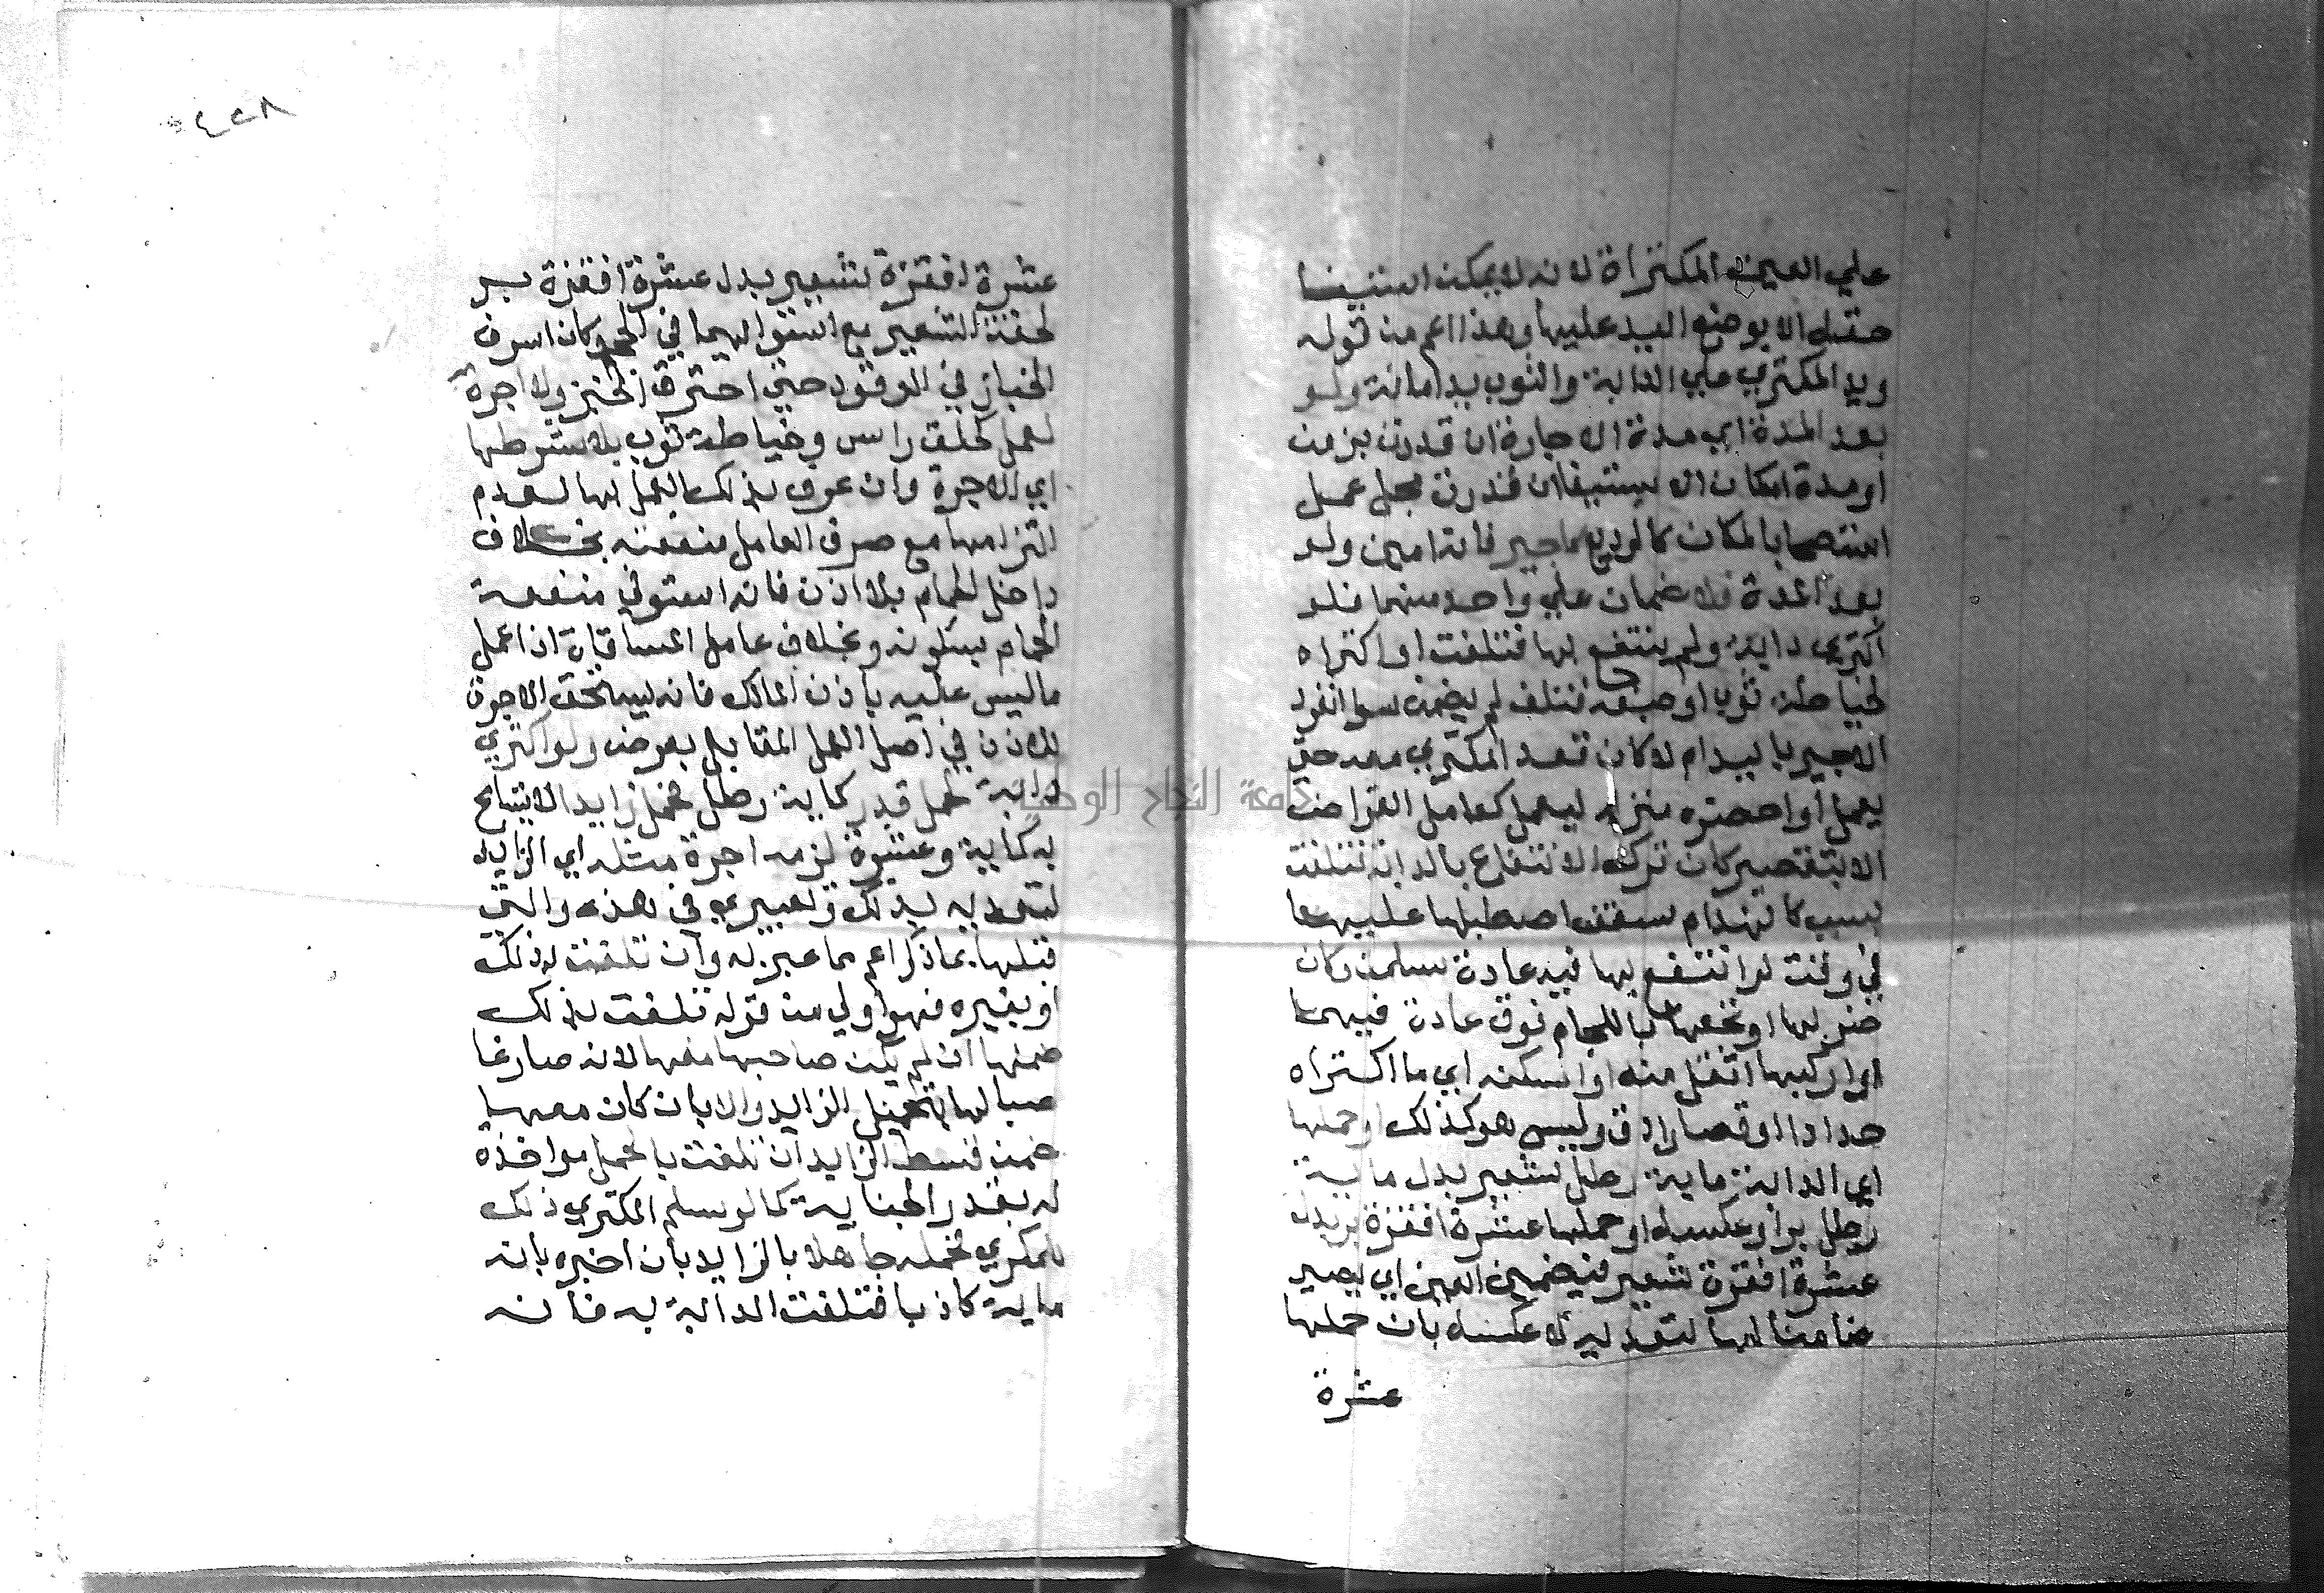 علي العين المكتراة لانه لا يمكن استيفا
حقه الا بوضع اليد عليها وهذا اعم من قوله
ويد المكتري علي الدابة والثوب يد امانة ولو
بعد المدة اي مدة الاجارة ان قدرت بزمن
او مدة امكان الاستيفا ان قدرت بمحل عمل
استصحابا لما كان كالوديع كاجير فانه امين ولو
بعد المدة فلا ضمان علي واحد منهما فلو
اكتري دابة ولم ينتفع بها فتلفت او اكتراه
لخياطة ثوب او صبغه فتلف لم يضمن سوا انفرد
الاجير باليد ام لا كان قعد المكتري معه حتي
يعمل او احضره منزله ليعمل كعامل القراض
الا بتقصير كان ترك الانتفاع بالدابة فتلفت
بسبب كانهدام سقف اصطبلها عليها
في وقت لو انتفع بها فيه عادة سلمت وكان
ضربها او نخعها باللجام فوق عادة فيهما
او اركبها اثقل منه او اسكنه اي ما اكتراه
حدادا او قصارا دق وليس هو كذلك او حملها
اي الدابة ماية رطل شعير بدل ماية
رطل بر او عكسه او حملها عشرة اقفزة بر بدل
عشرة اقفزة شعير فيضمن العين اي يصير
ضامنا لها لتعديه لا عكسه بان حملها
عشرة
٤٢٨
عشرة اقفزة شعير بدل عشرة اقفزة بر
لخفة الشعير مع استوايهما في الحجم وكان اسرف
الخباز في الوقود حتي احترق الخبز ولا اجرة
لعمل كحلق راس وخياطة ثوب بلا شرطها
اي الاجرة وان عرف بذلك العمل بها لعدم
التزامها مع صرف العامل منفعته بخلاف
داخل الحمام بلا اذن فانه استوفي منفعة
الحمام بسكونه وبخلاف عامل المساقاة اذا عمل
ما ليس عليه باذن المالك فانه يستحق الاجرة
للاذن في اصل العمل المقابل بعوض ولو اكتري
دابة لحمل قدر كماية رطل فحمل زايدا لا يتسامح
به كماية وعشرة لزمه اجرة مثله اي الزايد
لتعديه بذلك وتعبيري في هذه والتي
قبلها بما ذكر اعم مما عبر به وان تلفت بذلك
او بغيره فهو اولي من قوله تلفت بذلك
ضمنها ان لم يكن صاحبها معها لانه صار غا
صبا لها بتحميل الزايد والا بان كان معها
ضمن قسط الزايد ان تلفت بالحمل مواخذة
له بقدر الجناية كما لو سلم المكتري ذلك
للمكري فحمله جاهلا بالزايد بان اخبره بانه
ماية كاذبا فتلفت الدابة به فانه
جامعة النجاح الوطنية